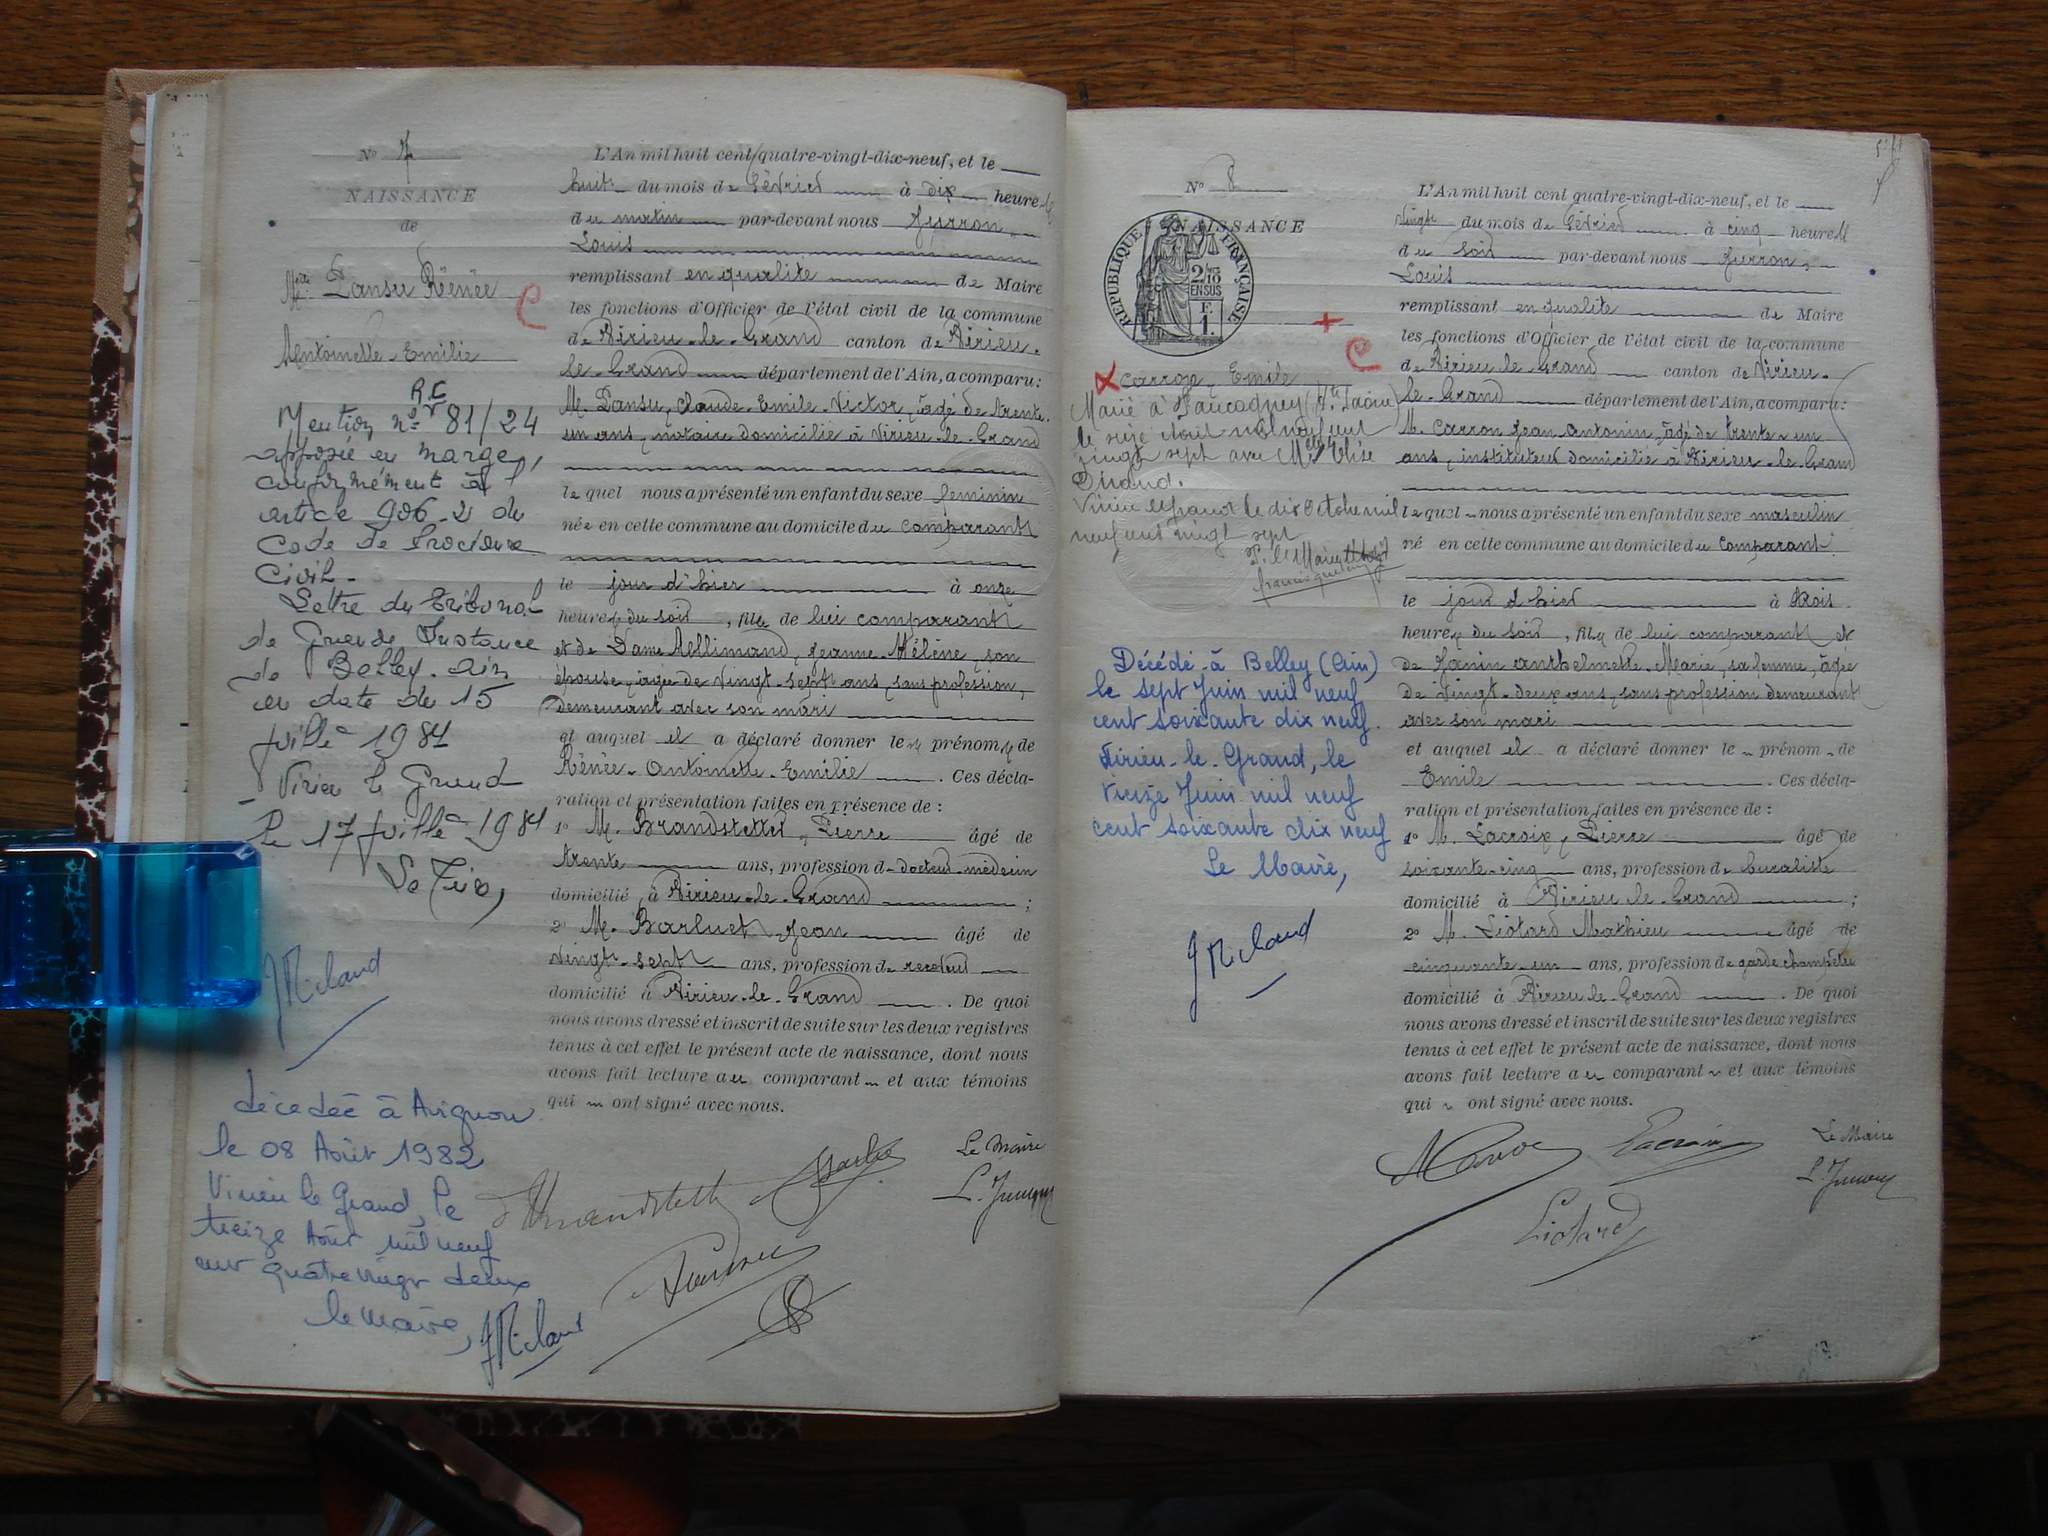 N° 7
NAISSANCE
de
Melle Pansu Rénée
Antoinette-Emilie
R.C
Mention n° 81/24
apposée en marge,
conformément à l'
article 906-2 du
Code de Procédure
Civil-
Lettre du Tribunal
de Grande Instance
de Belley-ain
en date de 15
juillet 1981
Virieu le Grand
le 17 juillet 1981
décédée à Avignon
le 08 Août 1982
Virieu le Grand, le
treize Août mil neuf
cent quatre vingt deux
le maire,
L'An mil huit cent quatre-vingt-dix-neuf, et le
huit du mois de Février à dix heures
du matin par-devant nous Jurron
Louis
remplissant en qualité de Maire
les fonctions d'Officier de l'état civil de la commune
de Virieu-le-Grand canton de Virieu-
le-Grand département de l'Ain, a comparu:
M. Pansu, Claude-Emile-Victor, âgé de trente-
un ans, notaire domicilié à Virieu-le-Grand
lequel nous a présenté un enfant du sexe féminin
née en cette commune au domicile du comparant
le jour d'hier à onze
heures du soir, fille de lui comparant
et de Dame Allimand, Jeanne-Hélène, son
épouse, âgée de vingt-sept ans, sans profession,
demeurant avec son mari
et auquel il a déclaré donner les prénoms de
Rénée-Antoinette-Emilie. Ces décla-
ration et présentation faites en présence de:
1° M. Brandstetter, Pierre âgé de
trente ans, profession de docteur-médecin
domicilié à Virieu-le-Grand;
2° M. Barluet, Jean âgé de
vingt-sept ans, profession de receveur
domicilié à Virieu-le-Grand. De quoi
nous avons dressé et inscrit de suite sur les deux registres
tenus à cet effet le présent acte de naissance, dont nous
avons fait lecture au comparant et aux témoins
qui ont signé avec nous.
Le Maire
N° 8
NAISSANCE
RÉPUBLIQUE FRANÇAISE
2/10
EN SUS
F.
1.
Carron, Emile
Marié à Faucogney (Hte Saône)
vingt sept avec Melle
neuf cent vingt sept
P. le Maire
Décédé à Belley (Ain)
le sept Juin mil neuf
cent soixante dix neuf.
Virieu-le-Grand, le
treize Juin mil neuf
cent soixante dix neuf
Le Maire,
L'An mil huit cent quatre-vingt-dix-neuf, et le
vingt du mois de Février à cinq heures
du soir par-devant nous Jurron
Louis
remplissant en qualité de Maire
les fonctions d'Officier de l'état civil de la commune
de Virieu-le-Grand canton de Virieu-
le-Grand département de l'Ain, a comparu:
M. Carron Jean Antonin, âgé de trente-un
ans, instituteur domicilié à Virieu-le-Grand
lequel nous a présenté un enfant du sexe masculin
né en cette commune au domicile du comparant
le jour d'hier à trois
heures du soir, fils de lui comparant et
de Janin Anthelmette-Marie, sa femme, âgée
de vingt-deux ans, sans profession demeurant
avec son mari
et auquel il a déclaré donner le prénom de
Emile. Ces décla-
ration et présentation faites en présence de:
1° M. Lacroix, Pierre âgé de
soixante-cinq ans, profession de buraliste
domicilié à Virieu-le-Grand;
2° M. Liotard Mathieu âgé de
cinquante-un ans, profession de garde champêtre
domicilié à Virieu-le-Grand. De quoi
nous avons dressé et inscrit de suite sur les deux registres
tenus à cet effet le présent acte de naissance, dont nous
avons fait lecture au comparant et aux témoins
qui ont signé avec nous.
Lacroix
Le Maire
Liotard